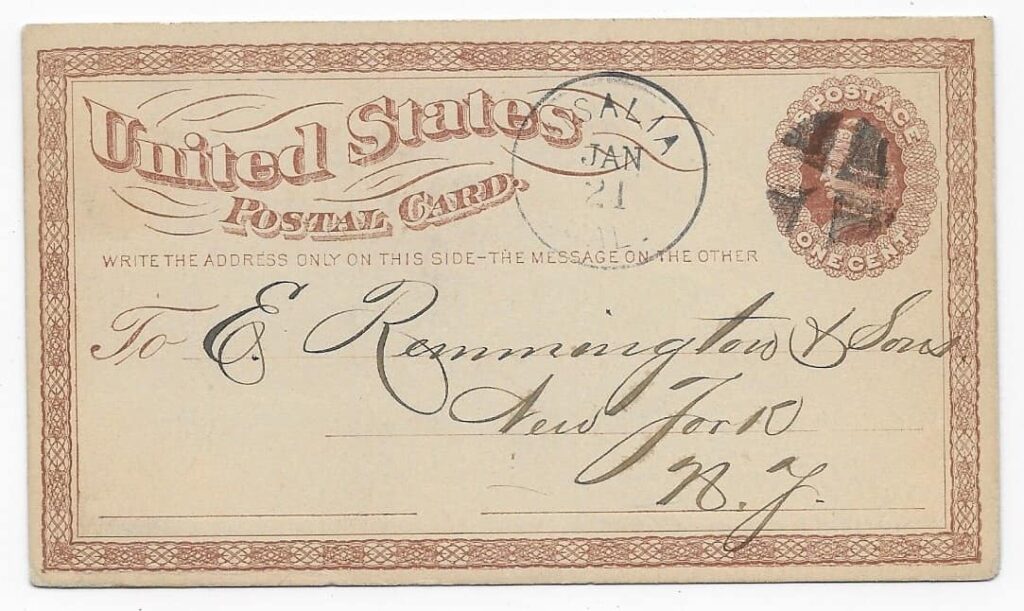 United States
POSTAL CARD.
SALIA
JAN
21
U.S. POSTAGE
ONE CENT
WRITE THE ADDRESS ONLY ON THIS SIDE–THE MESSAGE ON THE OTHER
To E. Remmington & Sons.
New York
N. Y.